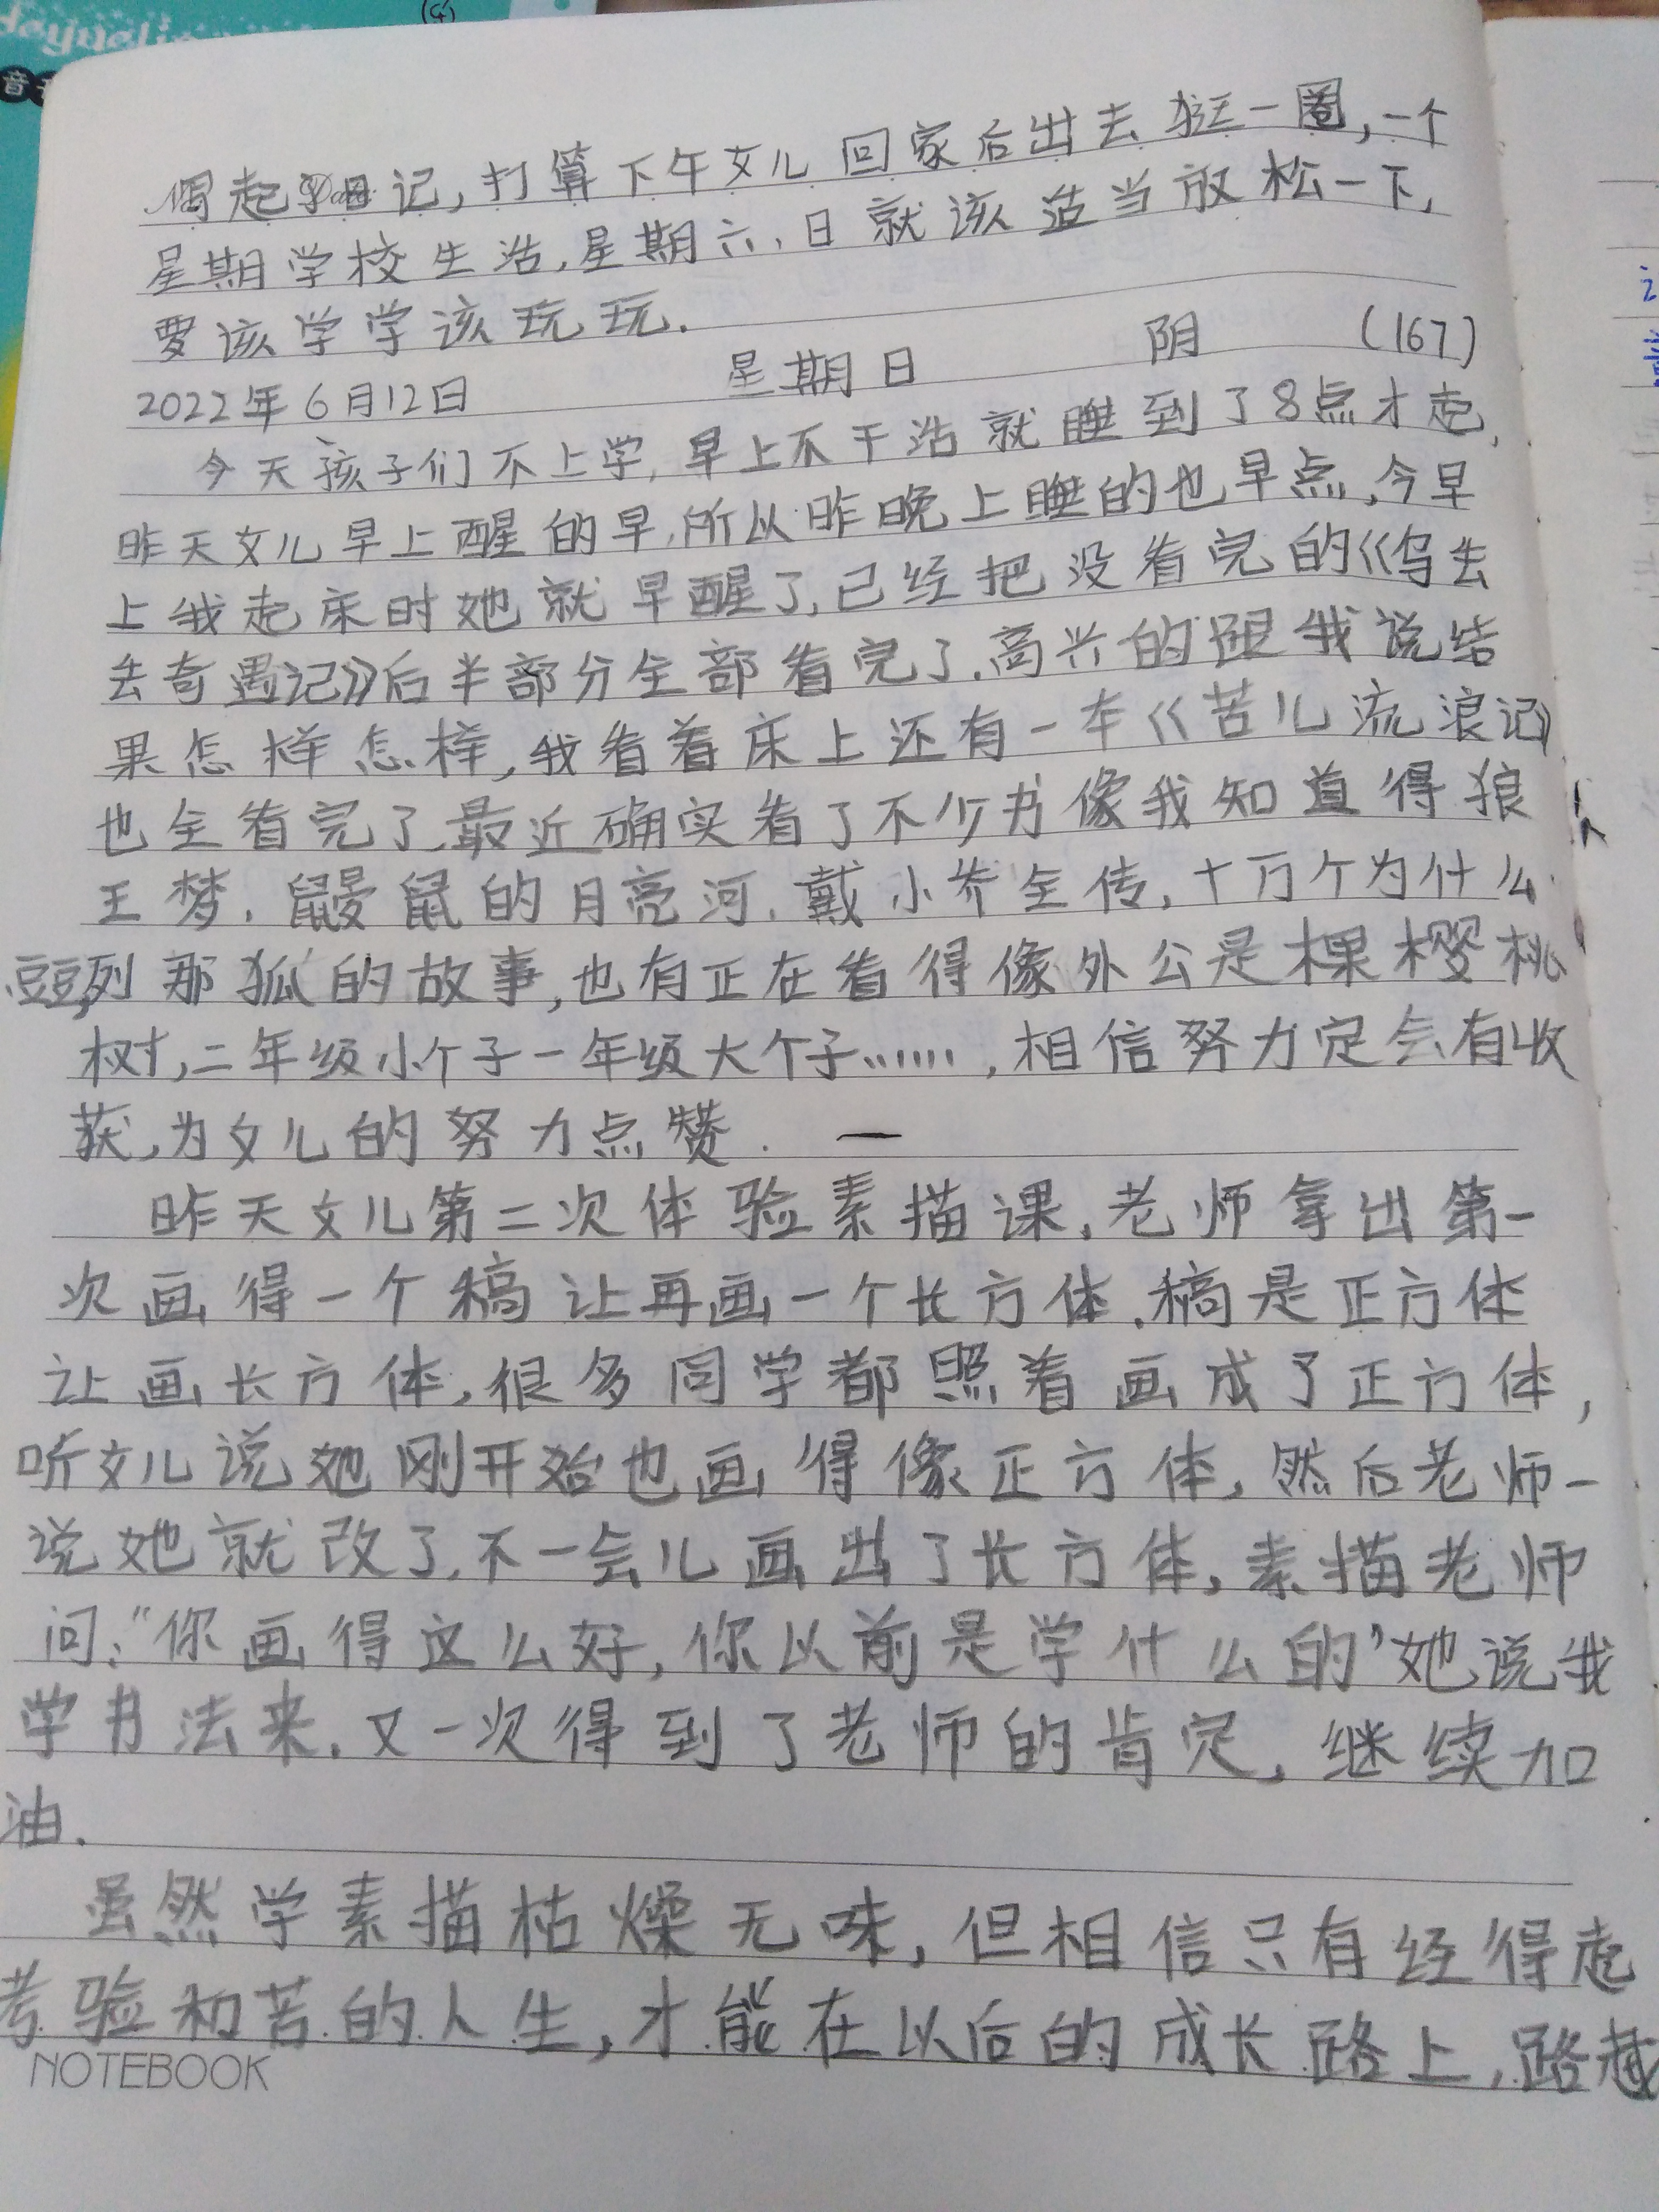 起日记,打算下午女儿回家后出去逛一圈,一个
星期学校生活,星期六、日就该适当放松一下,
要该学学该玩玩.
2022年6月12日 星期日 阴 (167)
今天孩子们不上学,早上不干活就睡到了8点才起,
昨天女儿早上醒的早,所以昨晚上睡的也早点,今早
上我起床时她就早醒了,已经把没看完的《乌去
去奇遇记》后半部分全部看完了.高兴的跟我说结
果怎样怎样,我看着床上还有一本《苦儿流浪记》
也全看完了,最近确实看了不少书像我知道得狼
王梦.鼹鼠的月亮河.戴小乔全传,十万个为什么
列那狐的故事,也有正在看得像外公是棵樱桃
树,二年级小个子一年级大个子……,相信努力定会有收
获,为女儿的努力点赞. 一
昨天女儿第二次体验素描课,老师拿出第一
次画得一个稿让再画一个长方体.稿是正方体
让画长方体,很多同学都照着画成了正方体,
听女儿说她刚开始也画得像正方体,然后老师一
说她就改了.不一会儿画出了长方体,素描老师
问:“你画得这么好,你以前是学什么的”她说我
学书法来.又一次得到了老师的肯定,继续加
油.
虽然学素描枯燥无味,但相信只有经得起
考验和苦的人生,才能在以后的成长路上,路越
NOTEBOOK